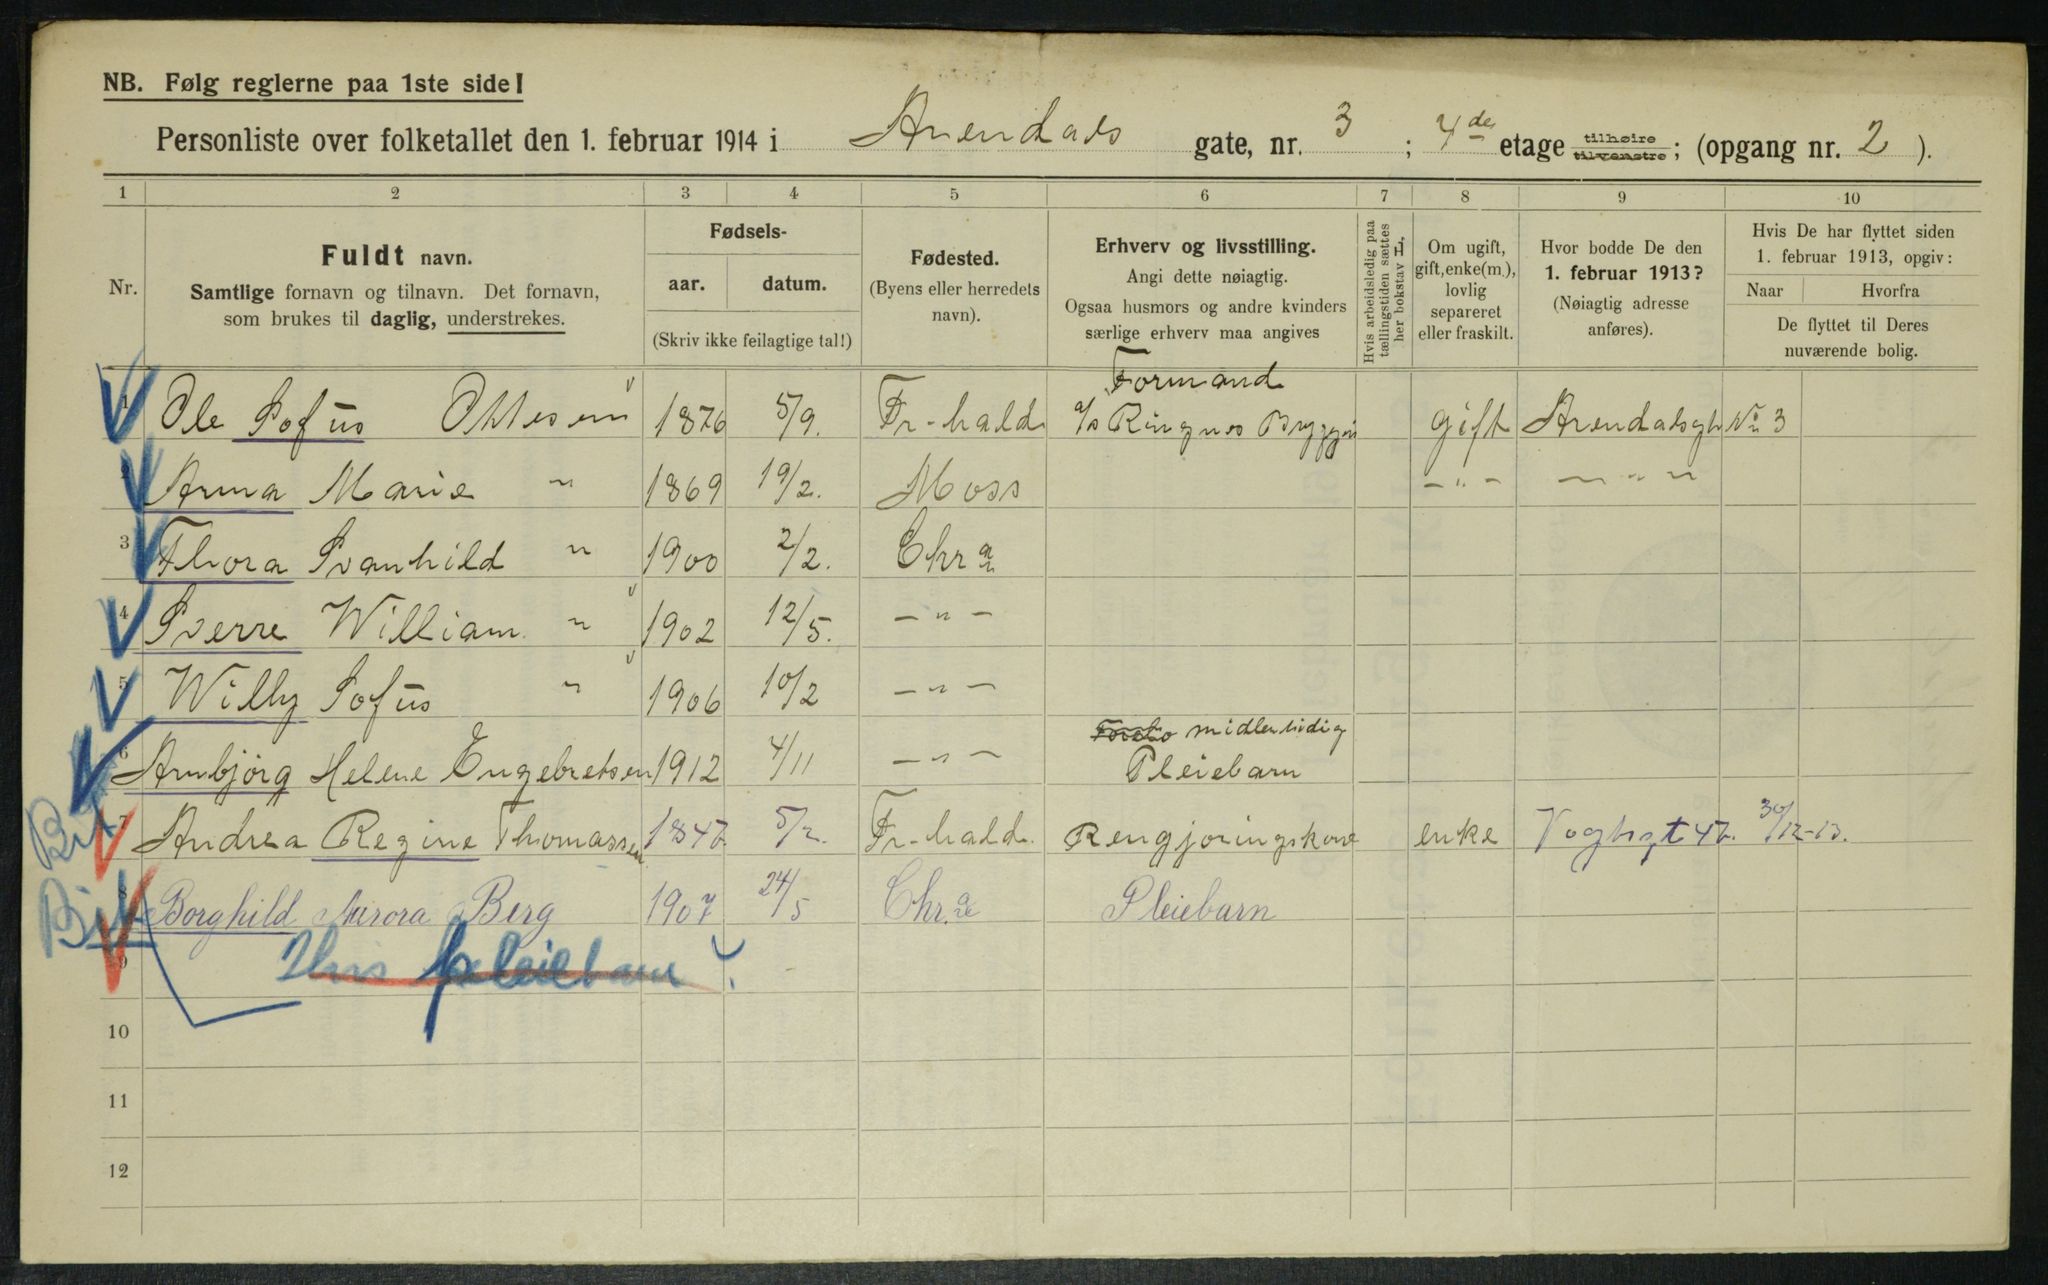 NB. Følg reglerne paa 1ste side!
Personliste over folketallet den 1. februar 1914 i Arendals gate, nr. 3 ; 4de etage tilhøire tilvenstre; (opgang nr. 2 ).
1 2 3 4 5 6 7 8 9 10
Nr.
Fuldt navn.
Samtlige fornavn og tilnavn. Det fornavn,
som brukes til daglig, understrekes.
Fødsels-
aar. datum.
(Skriv ikke feilagtige tal!)
Fødested.
(Byens eller herredets
navn).
Erhverv og livsstilling.
Angi dette nøiagtig.
Ogsaa husmors og andre kvinders
særlige erhverv maa angives
Hvis arbeidsledig paa
tællingstiden sættes
her bokstav L.
Om ugift,
gift, enke(m.),
lovlig
separeret
eller fraskilt.
Hvor bodde De den
1. februar 1913?
(Nøiagtig adresse
anføres).
Hvis De har flyttet siden
1. februar 1913, opgiv:
Naar Hvorfra
De flyttet til Deres
nuværende bolig.
Formand
1 Ole Sofus Ottesen 1876 5/9. Fr-hald a/s Ringnes Bryggeri gift Arendalsgt No 3
2 Anna Marie " 1869 19/2. Moss - " - - " -
3 Thora Svanhild " 1900 2/2. Chr a
4 Sverre William " 1902 12/5. - " -
5 Willy Sofus " 1906 10/2 - " -
midlertidig
6 Arnbjörg Helene Engebretsen 1912 4/11 - " - Pleiebarn
7 Andrea Regine Thomassen 1847 5/2. Fr-hald. Rengjøringskone enke Vogtsgt 47. 30/12-13.
8 Borghild Aurora Berg 1907 24/5 Chr. a Pleiebarn
9 pleiebarn
10
11
12